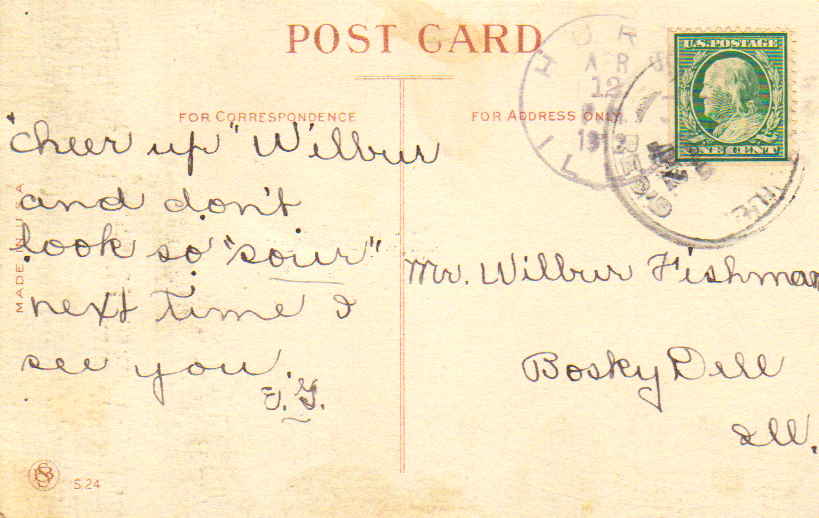 POST CARD
FOR CORRESPONDENCE
FOR ADDRESS ONLY.
U.S. POSTAGE
ONE CENT
12
191
ILL
"cheer up" Wilbur
and don't
look so "sour"
next time I
see you.
Mr. Wilbur Fishman
Bosky Dell
Ill.
MADE IN U.S.A
S.24